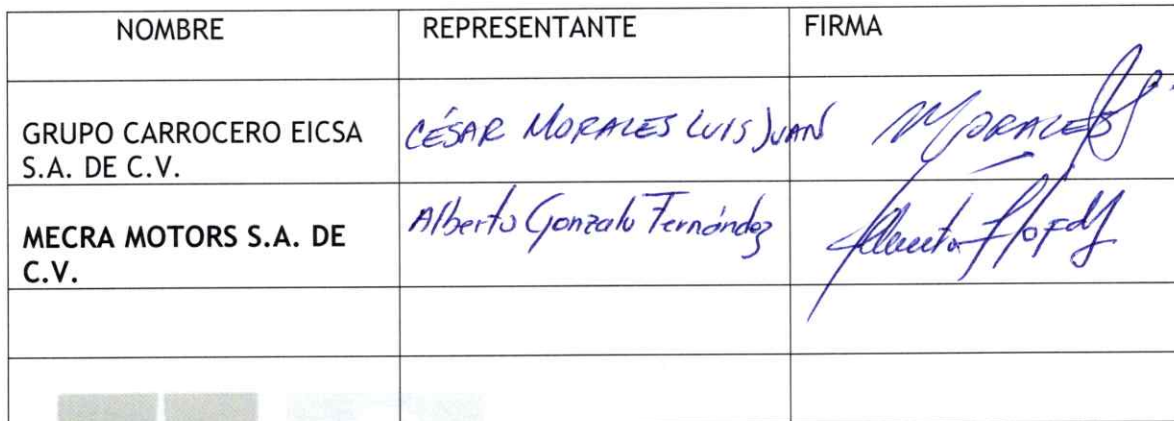 NOMBRE REPRESENTANTE FIRMA
GRUPO CARROCERO EICSA CÉSAR MORALES LUIS JUAN MORALES
S.A. DE C.V.
MECRA MOTORS S.A. DE Alberto Gonzalo Fernández
C.V.